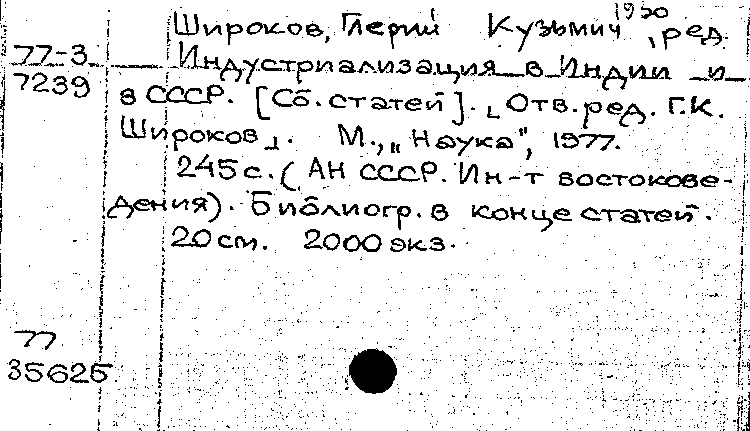 1930
Широков, Глерий Кузьмич, ред.
77-3 Индустриализация в Индии и
7239 в СССР. [Сб. статей]. ⌞Отв. ред. Г.К.
Широков⌟. М., „Наука", 1977.
245 с. (АН СССР. Ин-т востокове-
дения). Библиогр. в конце статей.
20 см. 2000 экз.
77
35625